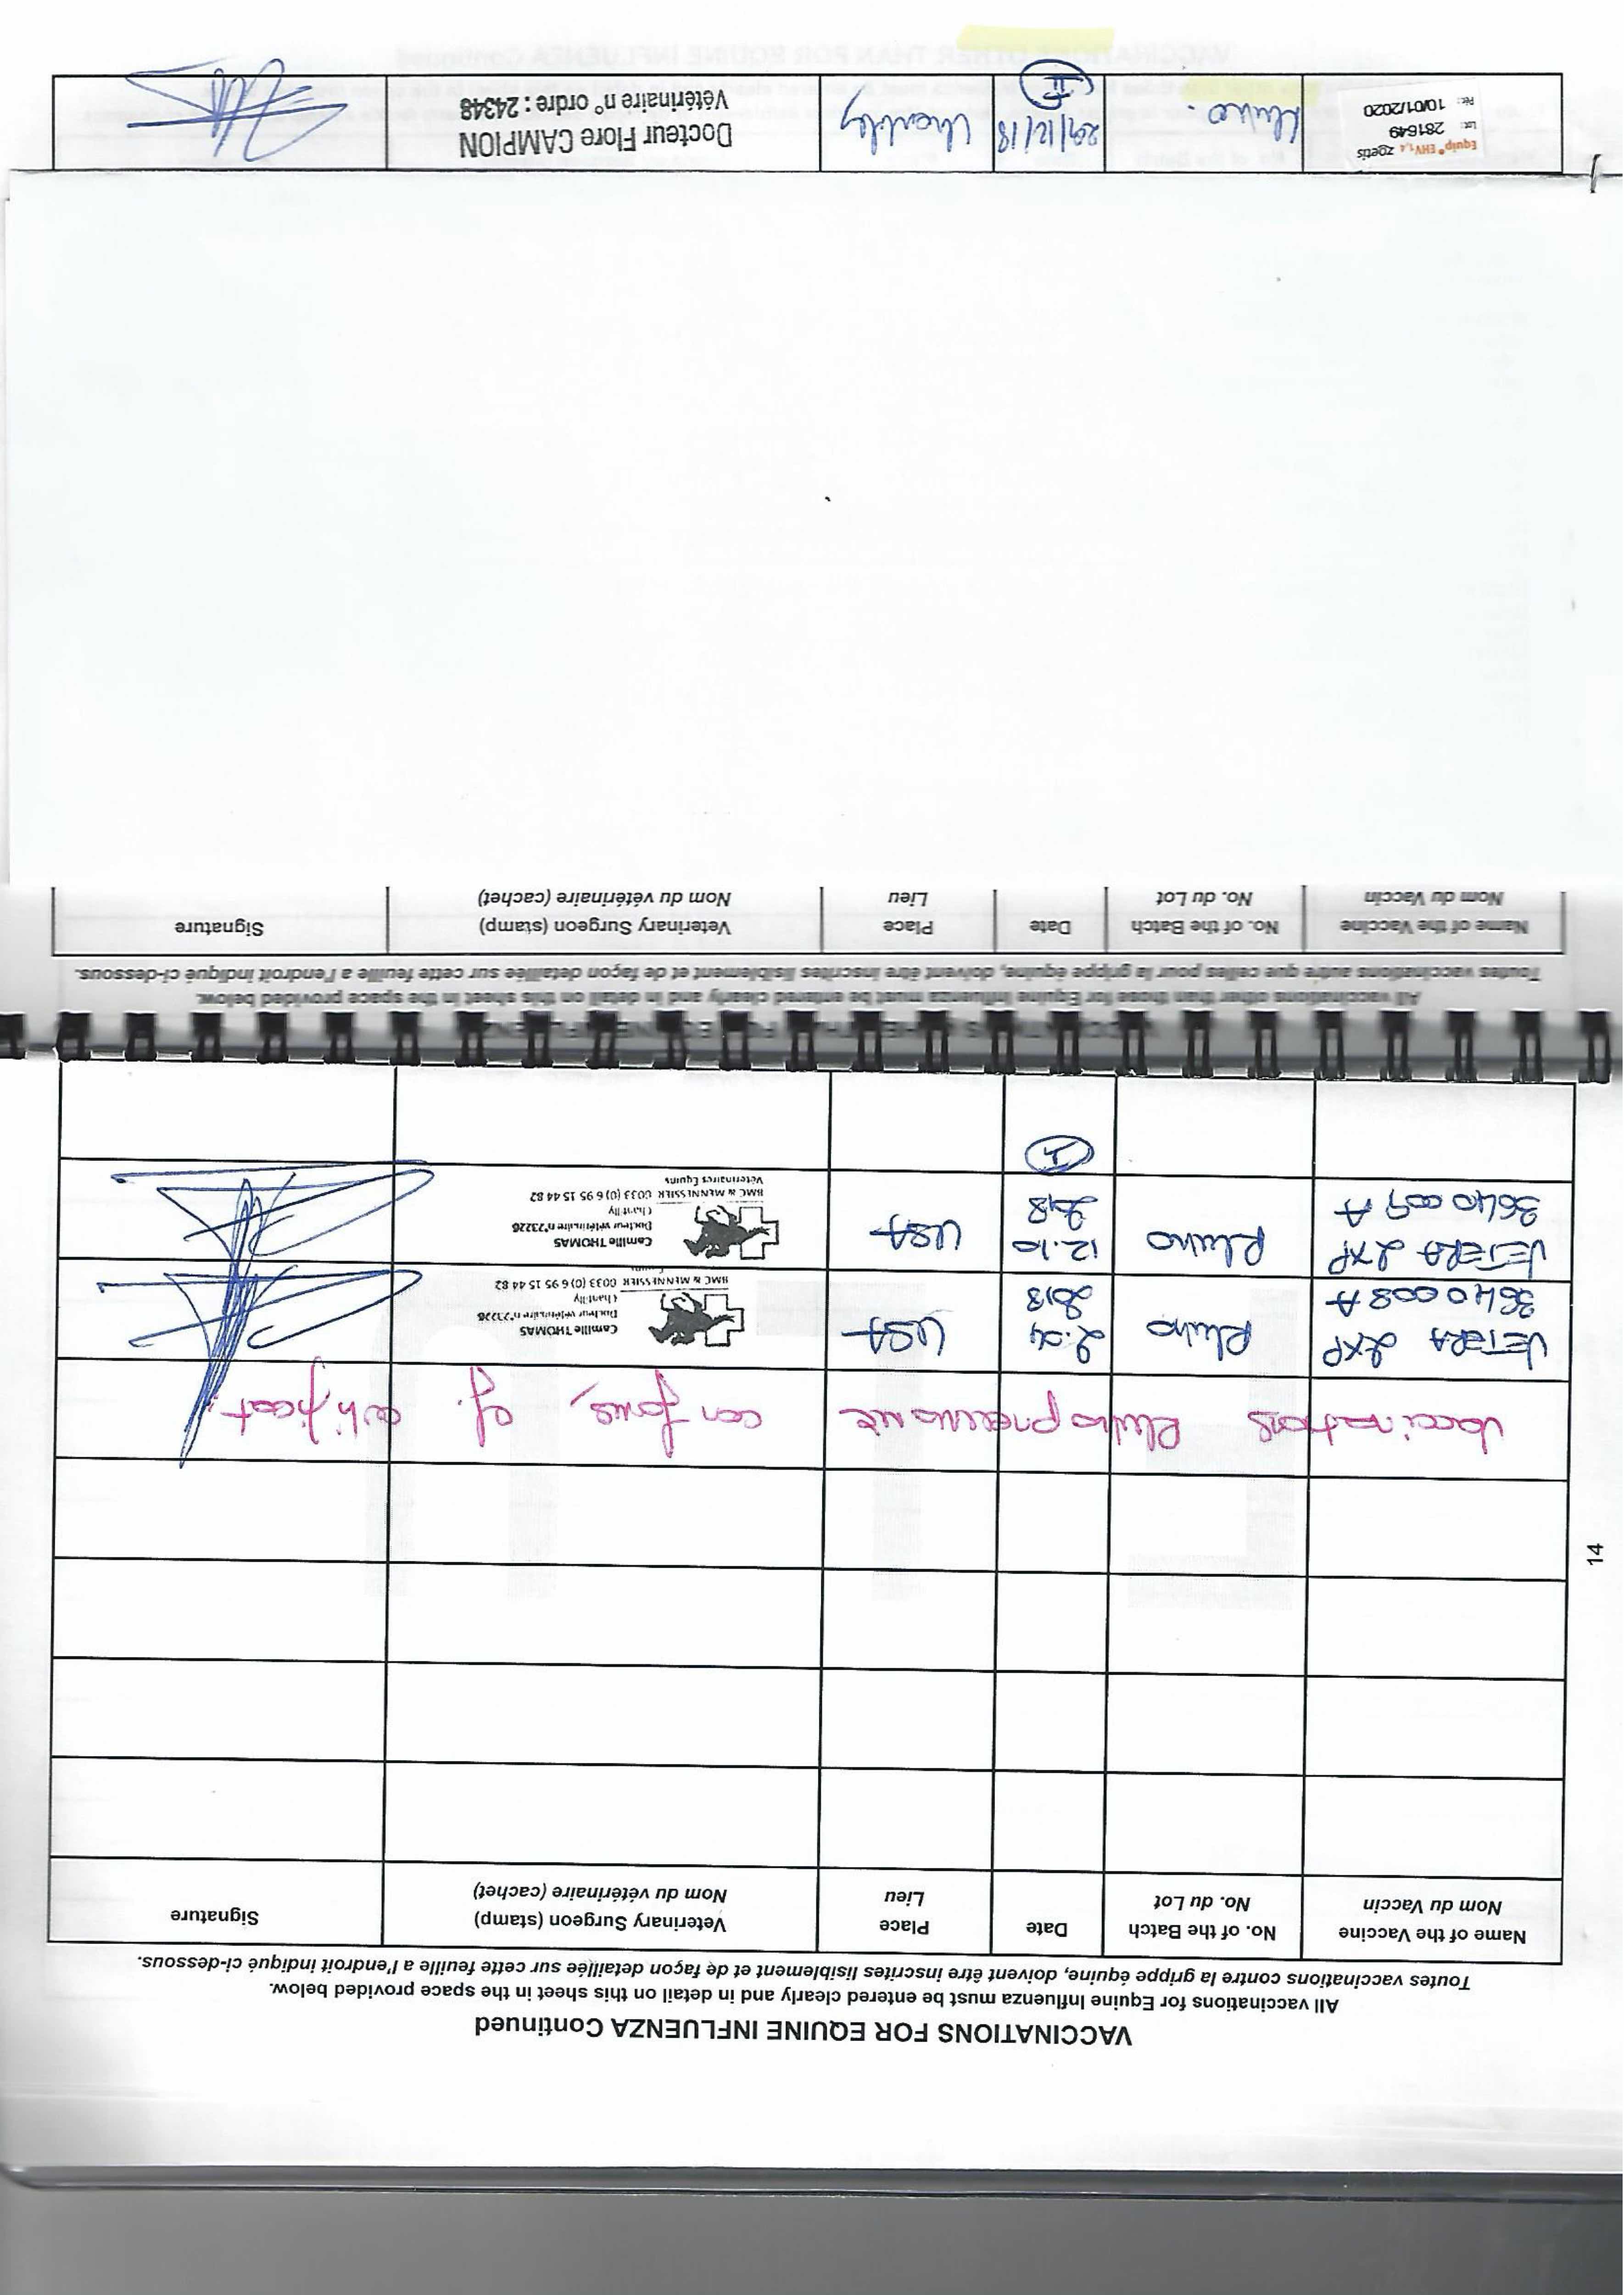 14
VACCINATIONS FOR EQUINE INFLUENZA Continued
All vaccinations for Equine Influenza must be entered clearly and in detail on this sheet in the space provided below.
Toutes vaccinations contre la grippe équine, doivent être inscrites lisiblement et de façon detaillée sur cette feuille a l'endroit indique ci-dessous.
Name of the Vaccine No. of the Batch Date Place Veterinary Surgeon (stamp) Signature
Nom du Vaccin No. du Lot Lieu Nom du vétérinaire (cachet)
Vaccinations Rhinopneumonie conformes, cf. certificat
VETERA 2XP Rhino 2.04 USA Camille THOMAS
3640008A 2018 Docteur vétérinaire n°23226
Chantilly
BMC & MENNESSIER 0033 (0)6 95 15 44 82
VETERA 2XP Rhino 12.10 USA Camille THOMAS
3640009A 2018 Docteur vétérinaire n°23226
Chantilly
BMC & MENNESSIER 0033 (0)6 95 15 44 82
Vétérinaires Equins
I
All vaccinations other than those for Equine Influenza must be entered clearly and in detail on this sheet in the space provided below.
Toutes vaccinations autre que celles pour la grippe équine, doivent être inscrites lisiblement et de façon detaillée sur cette feuille a l'endroit indique ci-dessous.
Name of the Vaccine No. of the Batch Date Place Veterinary Surgeon (stamp) Signature
Nom du Vaccin No. du Lot Lieu Nom du vétérinaire (cachet)
Equip® EHV1,4 zoetis Rhino. 29/12/18 Chantilly Docteur Flore CAMPION
Lot: 281649 Vétérinaire n° ordre : 24348
Pér.: 10/01/2020
II
VACCINATIONS OTHER THAN FOR EQUINE INFLUENZA Continued